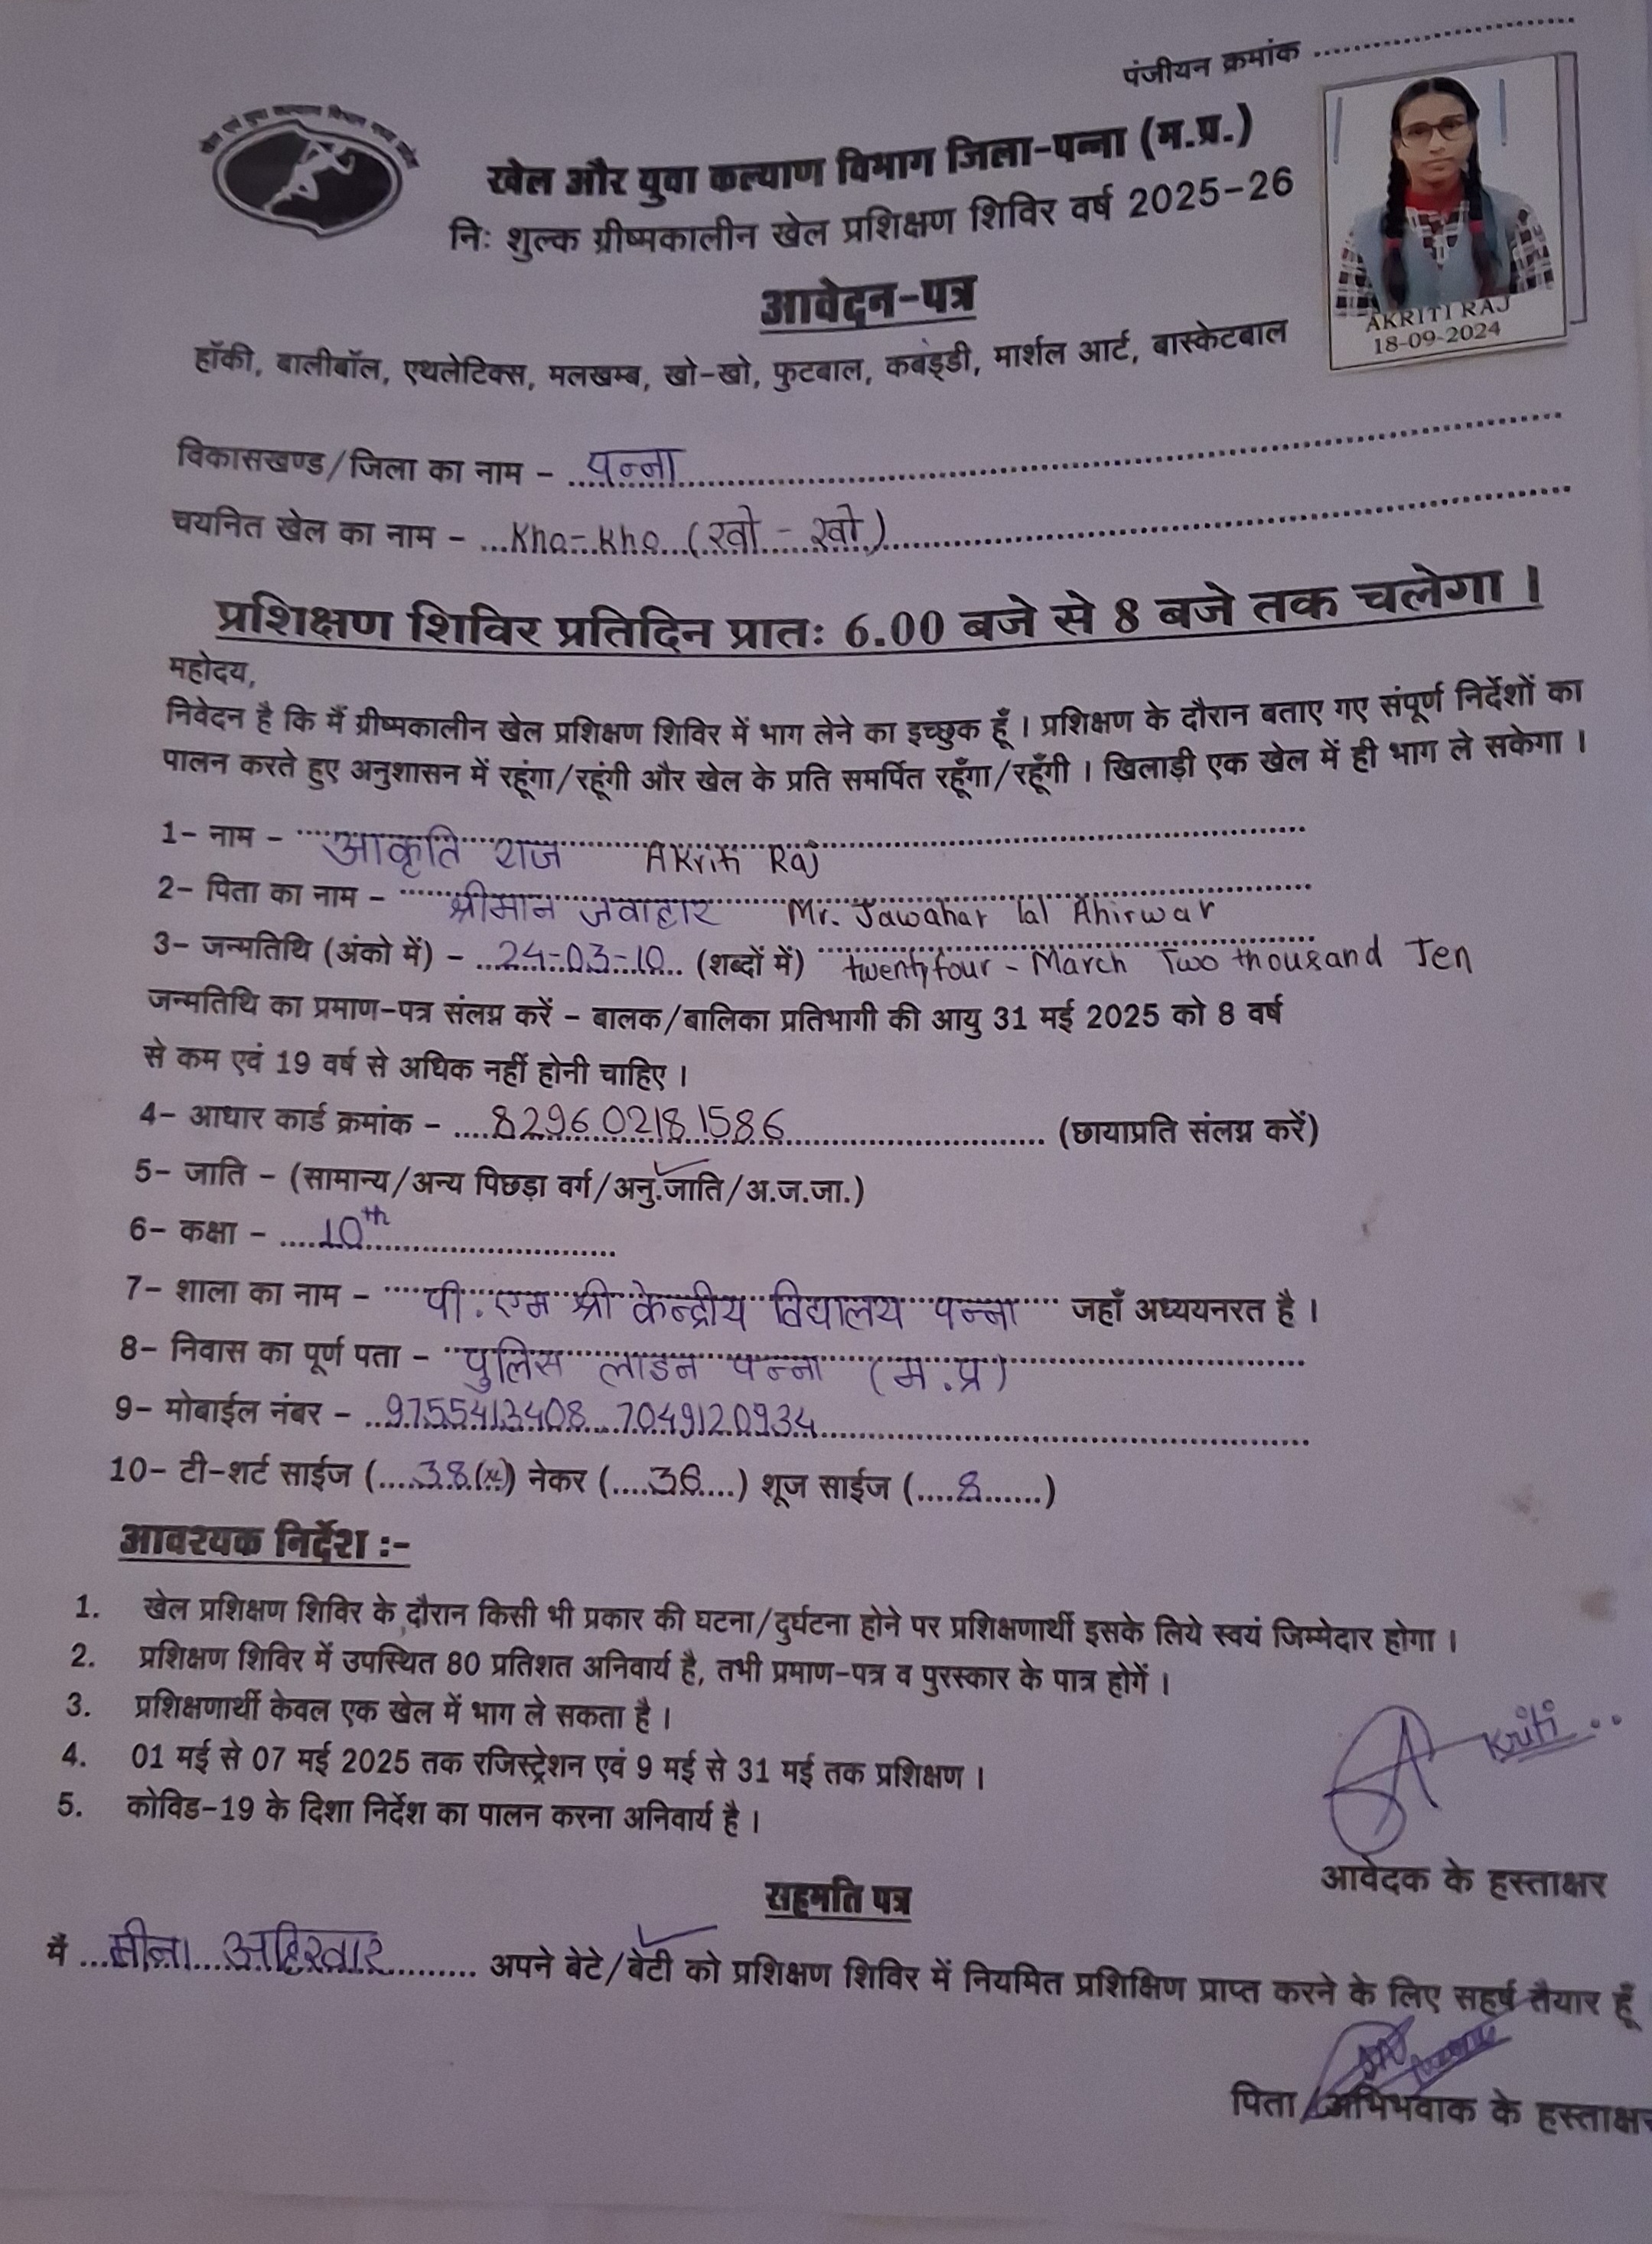 पंजीयन क्रमांक
खेल एवं युवा कल्याण विभाग मध्य प्रदेश
खेल और युवा कल्याण विभाग जिला-पन्ना (म.प्र.)
निः शुल्क ग्रीष्मकालीन खेल प्रशिक्षण शिविर वर्ष 2025-26
आवेदन-पत्र
AKRITI RAJ
18-09-2024
हॉकी, बालीबॉल, एथलेटिक्स, मलखम्ब, खो-खो, फुटबाल, कबड्डी, मार्शल आर्ट, बास्केटबाल
विकासखण्ड/जिला का नाम - पन्ना
चयनित खेल का नाम - Kho-Kho (खो - खो)
प्रशिक्षण शिविर प्रतिदिन प्रातः 6.00 बजे से 8 बजे तक चलेगा ।
महोदय,
निवेदन है कि मैं ग्रीष्मकालीन खेल प्रशिक्षण शिविर में भाग लेने का इच्छुक हूँ । प्रशिक्षण के दौरान बताए गए संपूर्ण निर्देशों का
पालन करते हुए अनुशासन में रहूंगा/रहूंगी और खेल के प्रति समर्पित रहूँगा/रहूँगी । खिलाड़ी एक खेल में ही भाग ले सकेगा ।
1- नाम - आकृति राज Akriti Raj
2- पिता का नाम - श्रीमान जवाहार Mr. Jawahar lal Ahirwar
3- जन्मतिथि (अंको में) - 24-03-10 (शब्दों में) twentyfour - March Two thousand Ten
जन्मतिथि का प्रमाण-पत्र संलग्न करें - बालक/बालिका प्रतिभागी की आयु 31 मई 2025 को 8 वर्ष
से कम एवं 19 वर्ष से अधिक नहीं होनी चाहिए ।
4- आधार कार्ड क्रमांक - 829602181586 (छायाप्रति संलग्न करें)
5- जाति - (सामान्य/अन्य पिछड़ा वर्ग/अनु.जाति/अ.ज.जा.)
6- कक्षा - 10th
7- शाला का नाम - पी.एम श्री केन्द्रीय विद्यालय पन्ना जहाँ अध्ययनरत है ।
8- निवास का पूर्ण पता - पुलिस लाइन पन्ना (म.प्र)
9- मोबाईल नंबर - 9755413408 7049120934
10- टी-शर्ट साईज (38(XL)) नेकर (36) शूज साईज (8)
आवश्यक निर्देश :-
1. खेल प्रशिक्षण शिविर के दौरान किसी भी प्रकार की घटना/दुर्घटना होने पर प्रशिक्षणार्थी इसके लिये स्वयं जिम्मेदार होगा ।
2. प्रशिक्षण शिविर में उपस्थित 80 प्रतिशत अनिवार्य है, तभी प्रमाण-पत्र व पुरस्कार के पात्र होगें ।
3. प्रशिक्षणार्थी केवल एक खेल में भाग ले सकता है ।
4. 01 मई से 07 मई 2025 तक रजिस्ट्रेशन एवं 9 मई से 31 मई तक प्रशिक्षण ।
5. कोविड-19 के दिशा निर्देश का पालन करना अनिवार्य है ।
Akriti
आवेदक के हस्ताक्षर
सहमति पत्र
मै मीना अहिरवार अपने बेटे/बेटी को प्रशिक्षण शिविर में नियमित प्रशिक्षिण प्राप्त करने के लिए सहर्ष तैयार हूँ
पिता/अभिभवाक के हस्ताक्षर